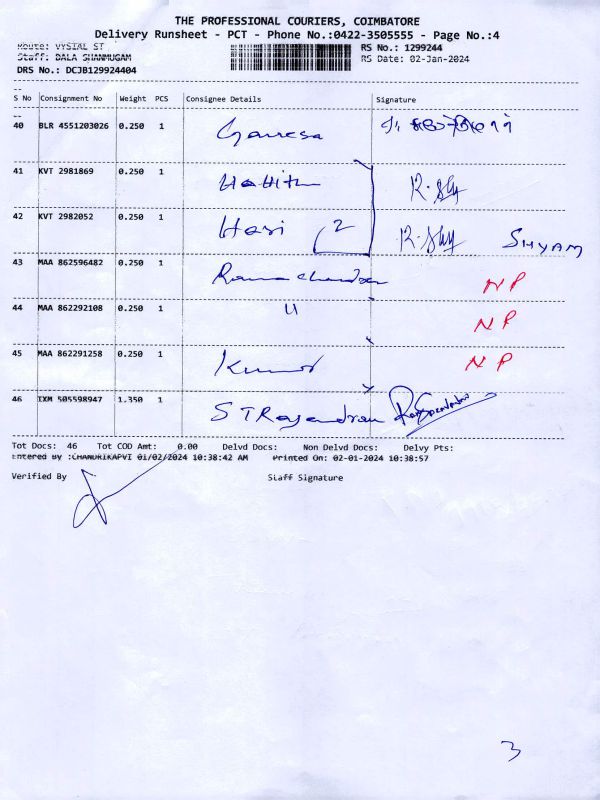 THE PROFESSIONAL COURIERS, COIMBATORE
Delivery Runsheet - PCT - Phone No.:0422-3505555 - Page No.:4
Route: VYSIAL ST
RS No.: 1299244
Staff: BALA SHANMUGAM
RS Date: 02-Jan-2024
DRS No.: DCJB129924404
S No Consignment No Weight PCS Consignee Details Signature
40 BLR 4551203026 0.250 1 Ganesa
41 KVT 2981869 0.250 1 R.Shy
42 KVT 2982052 0.250 1 Hari 2 R.Shy SHYAM
43 MAA 862596482 0.250 1 Ramachandran NP
44 MAA 862292108 0.250 1 " NP
45 MAA 862291258 0.250 1 Kumar NP
46 IXM 505598947 1.350 1 STRajendran
Tot Docs: 46 Tot COD Amt: 0.00 Delvd Docs: Non Delvd Docs: Delvy Pts:
Entered By :CHANDRIKAPVT 01/02/2024 10:38:42 AM Printed On: 02-01-2024 10:38:57
Verified By Staff Signature
3